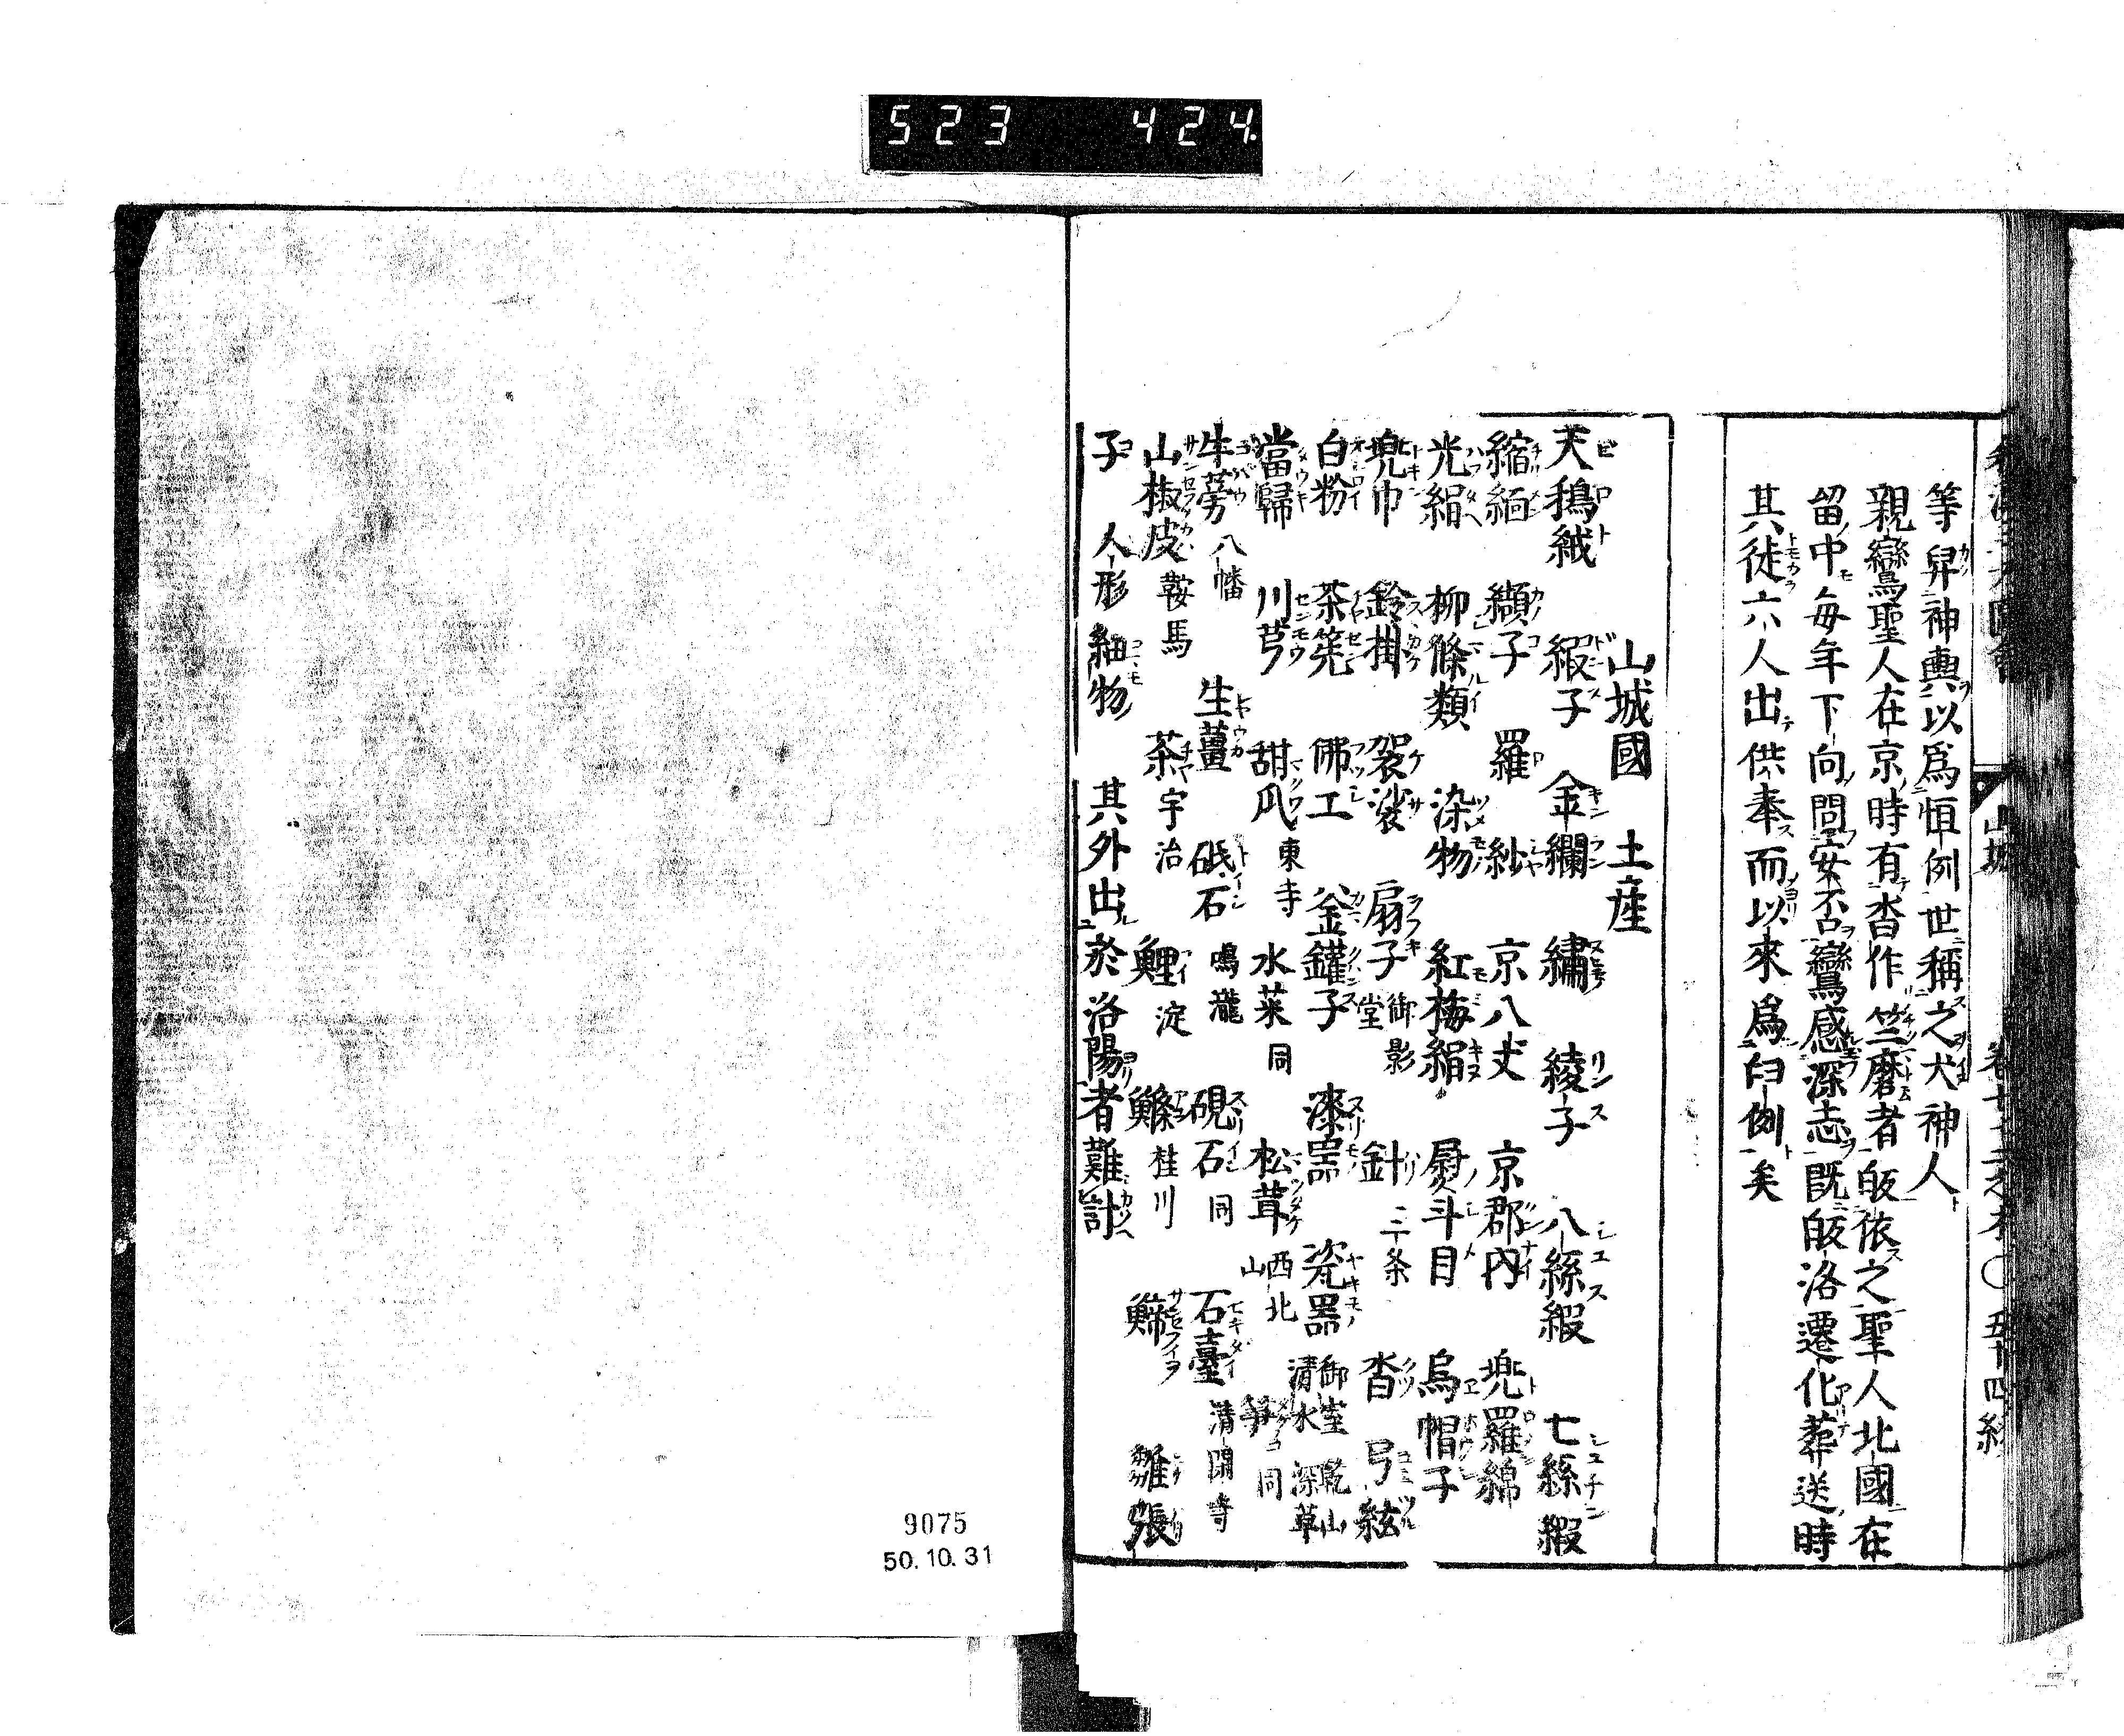 523 424.
等舁神輿以爲恒例世稱之犬神人
親鸞聖人在京時有沓作竺麿者皈依之聖人北國在
留中毎年下向問安否鸞感深志既皈洛遷化葬送時
其徒六人出供奉而以來爲臼例矣
山城國 土産
天鵝絨 緞子 金襴 繡 綾子 八絲緞 七絲緞
縮緬 纐子 羅紗 京八丈 京郡内 兜羅綿
光絹 柳條類 染物 紅梅絹 熨斗目 烏帽子
兜巾 鈴掛 袈裟 扇子 御影堂 針 三条 沓 弓絃
白粉 茶筅 佛工 釜鑵子 漆器 瓷器 御室 乾山 清水 深草
當歸 川芎 甜瓜 東寺 水菜 同 松茸 西北山 笋 同
牛蒡 八幡 生薑 砥石 鳴瀧 硯石 同 石臺 清閑寺
山椒皮 鞍馬 茶 宇治 鯉 淀 鰷 桂川 鯑 雛張
子 人形 細物 其外出於洛陽者難計
山城 五十四終
9075
50.10.31